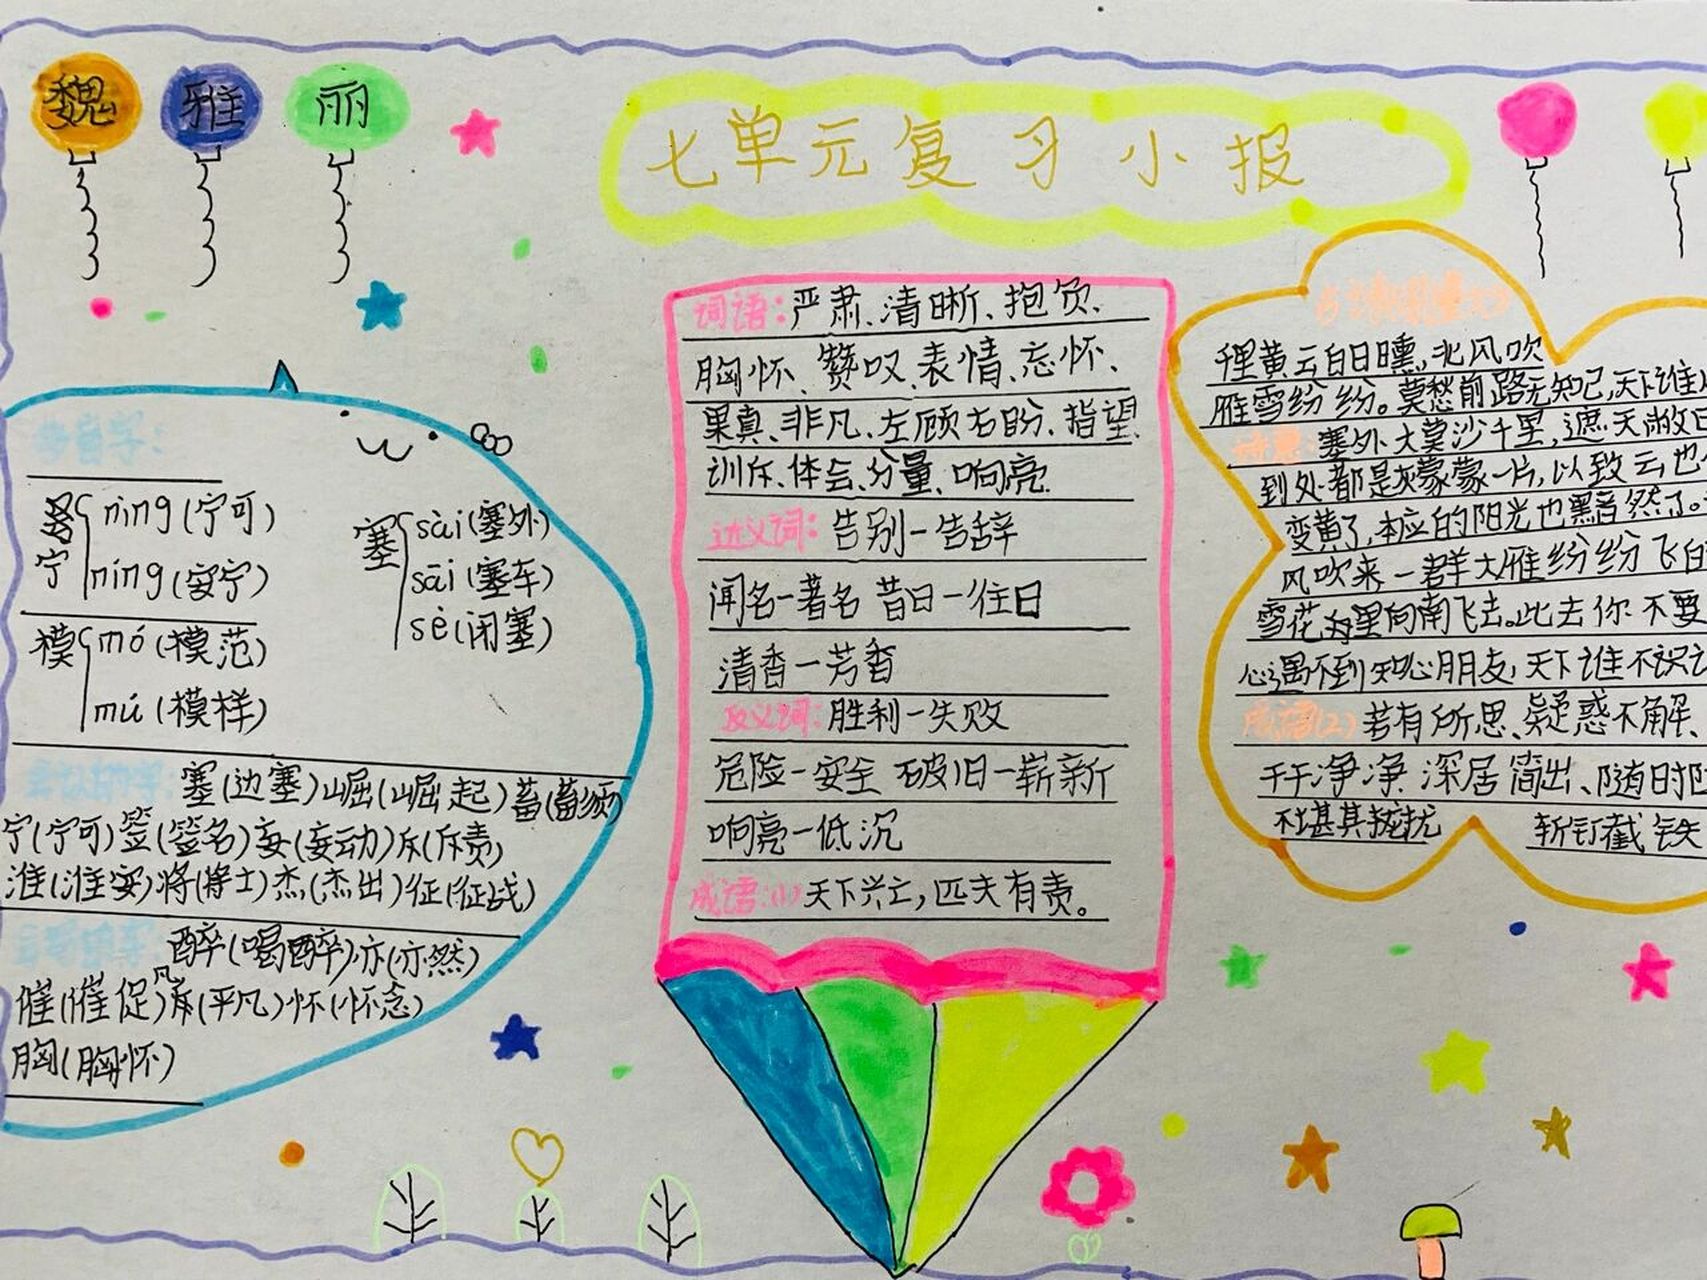 魏 雅 丽
七单元复习小报
多音字:
宁 nìng(宁可)
níng(安宁)
模 mó(模范)
mú(模样)
塞 sài(塞外)
sāi(塞车)
sè(闭塞)
塞(边塞)崛(崛起)蓄(蓄须)
宁(宁可)签(签名)妄(妄动)斥(斥责)
淮(淮安)将(将士)杰(杰出)征(征战)
醉(喝醉)亦(亦然)
催(催促)凡(平凡)怀(怀念)
胸(胸怀)
词语:严肃、清晰、抱负、
胸怀、赞叹、表情、忘怀、
果真、非凡、左顾右盼、指望
训斥、体会、分量、响亮
近义词:告别一告辞
闻名一著名 昔日一往日
清香一芳香
反义词:胜利一失败
危险一安全 破旧一崭新
响亮一低沉
成语:(1)天下兴亡,匹夫有责。
千里黄云白日曛,北风吹
雁雪纷纷。莫愁前路无知己,天下谁
塞外大莫沙千里,遮天敝日
到处都是灰蒙蒙一片,以致云也
变黄了,本应的阳光也黑音然了。
风吹来一群大雁纷纷飞
雪花向南飞去。此去你不要
心遇不到知心朋友,天下谁不识
成语(2)若有所思、疑惑不解、
干干净净、深居简出、随时
不堪其扰 斩钉截铁